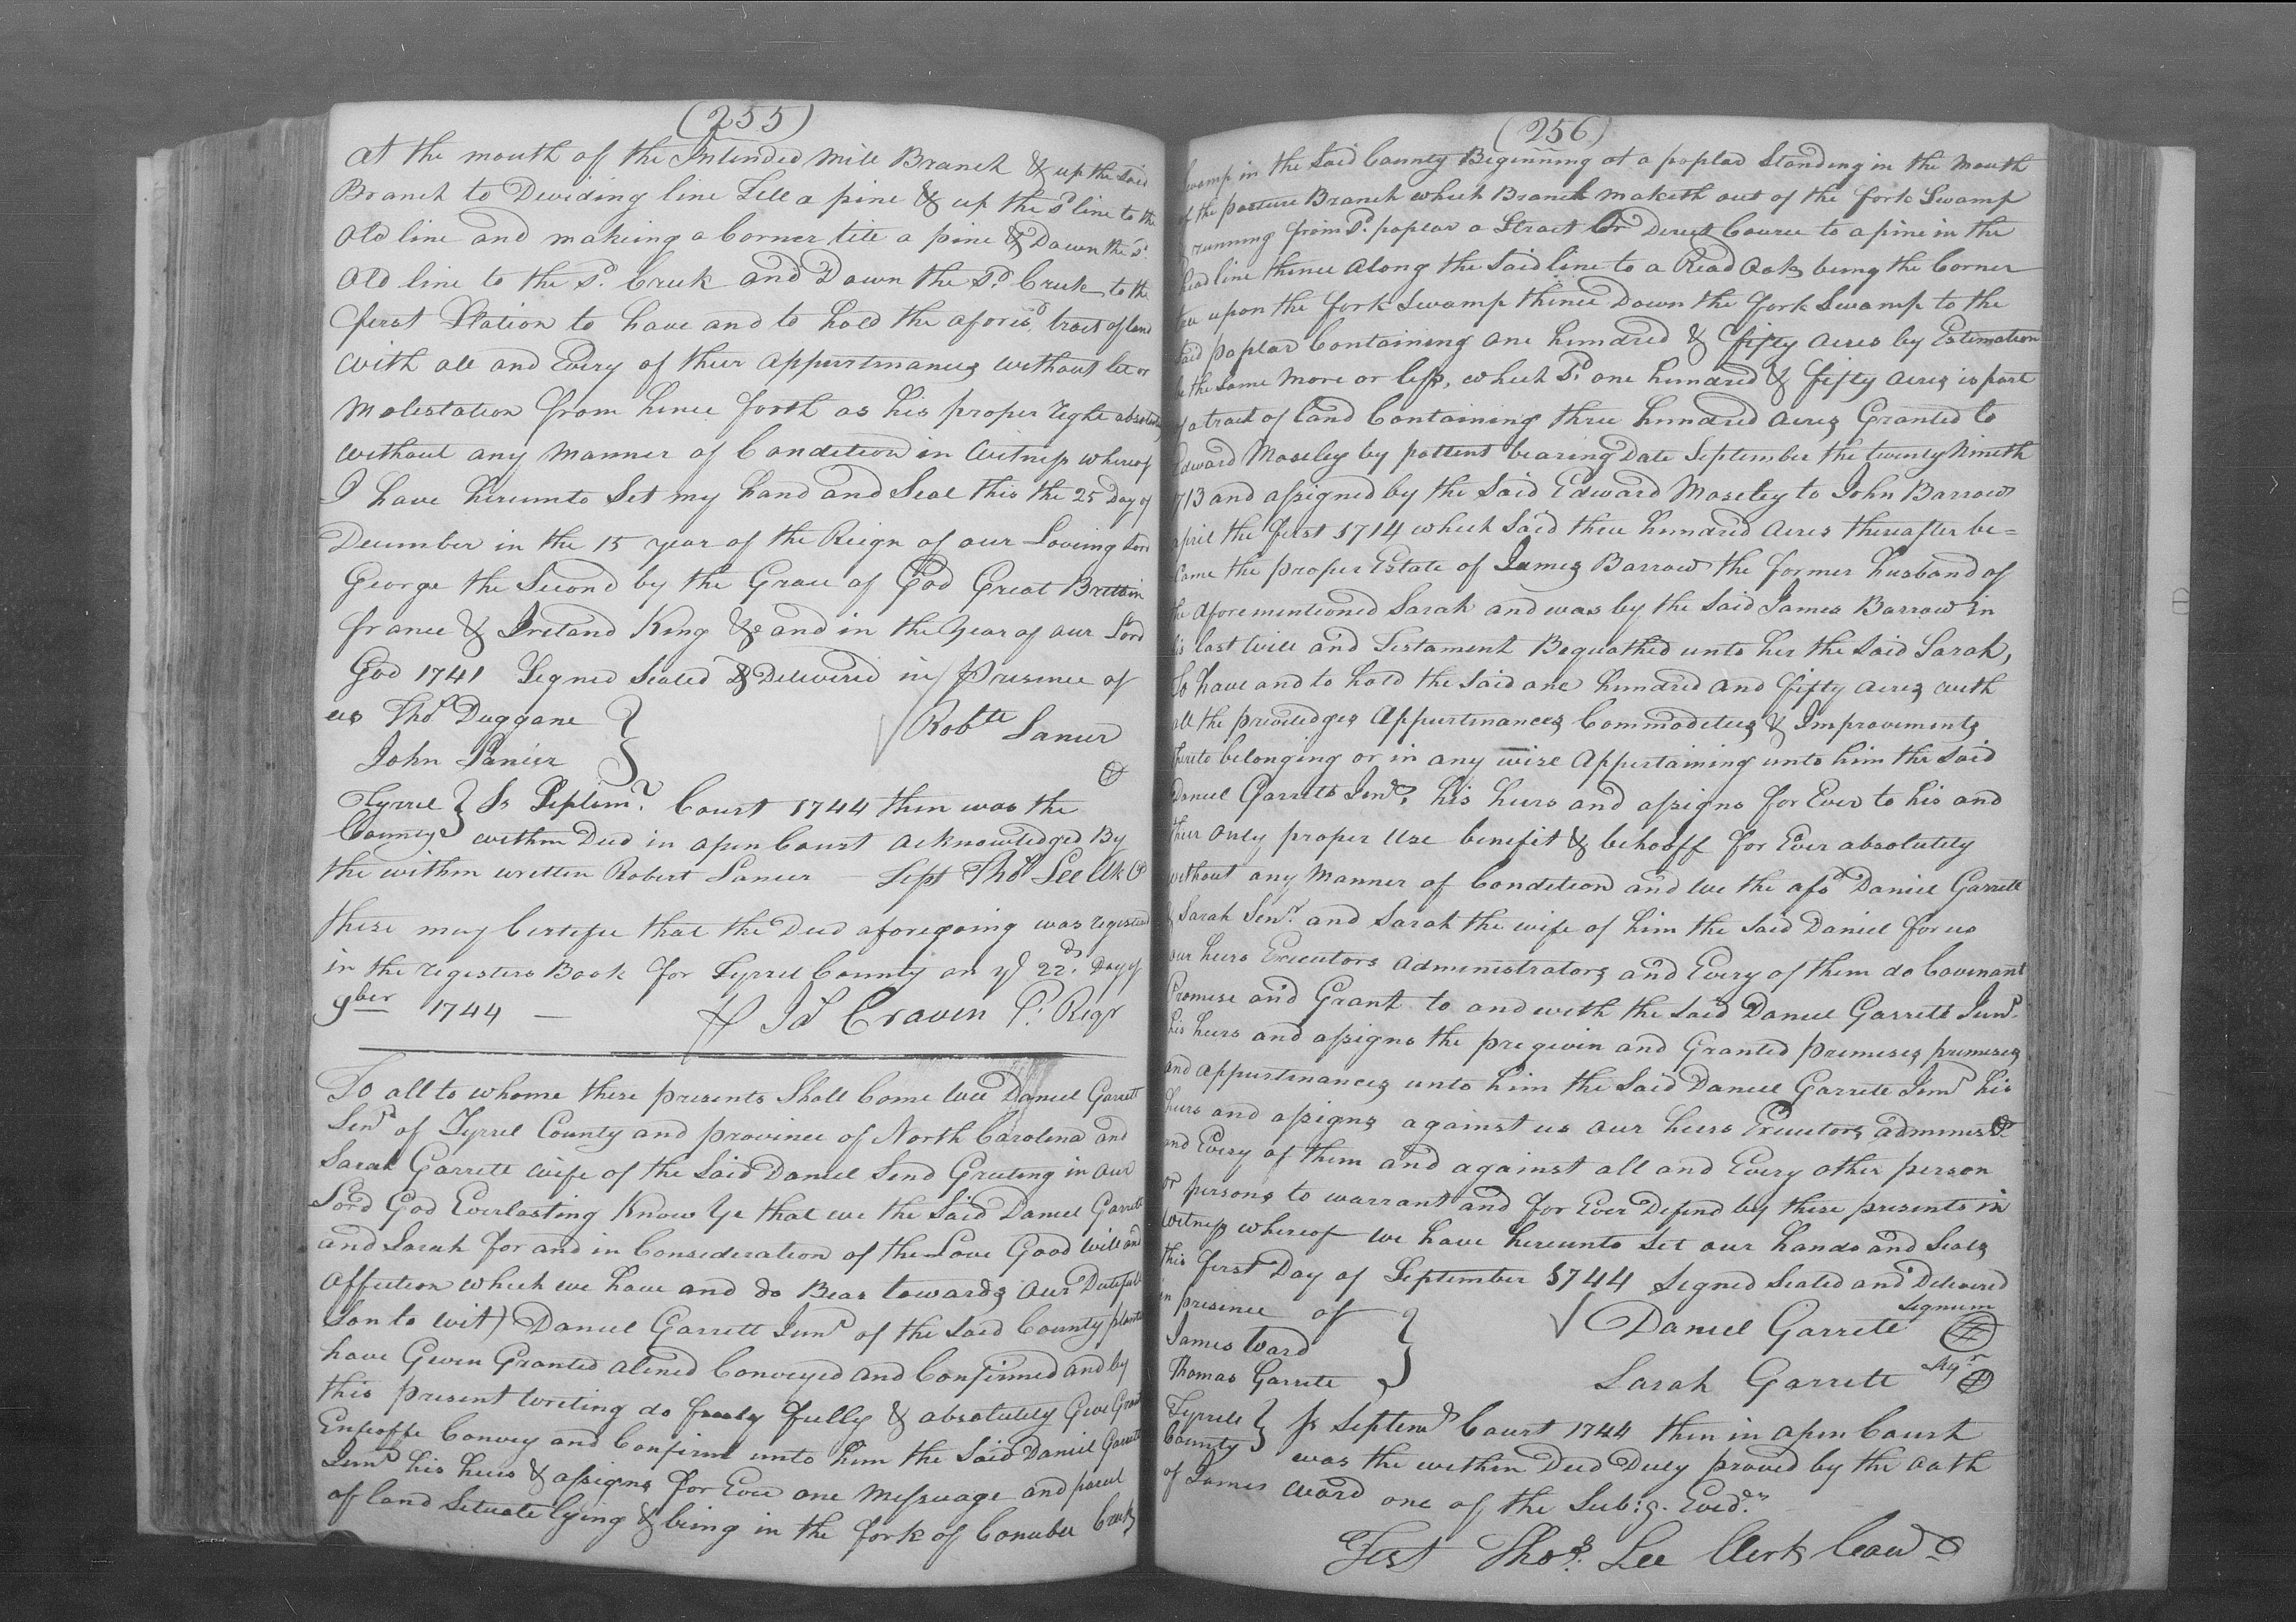 (255)
at the mouth of the Intended Mill Branch & up the said
Branch to Deviding line Till a pine & up the sd. line to the
Old line and makeing a Corner till a pine & Down the sd.
Old line to the sd. Creek and Down the sd. Creek to the
first Station to have and to hold the aforesd. tract of land
With all and Every of their appurtinances without let or
Molestation from hence forth as his proper right absolutely
without any Manner of Condition in Witness whereof
I have hereunto Set my hand and Seal this the 25 Day of
December in the 15 year of the Reign of our Loveing Lord
George the Second by the Grace of God Great Brittain
france & Ireland King &c and in the Year of our Lord
God 1741 Signed Sealed & Delivered in presence of
us Thos. Duggane
John Lanier
Robtt Lanier
Tyrrel County } Ss Septemr. Court 1744 then was the
within Deed in open Court acknowledged By
the within written Robert Lanier Test Thos. Lee Clk C
these may Certifie that the Deed aforegoing was registered
in the registers Book for Tyrrel County on ye 22d. Day of
9ber 1744 — Jas Craven P. Regr
To all to whome these presents Shall Come Wee Daniel Garrett
Senr of Tyrrel County and province of North Carolina and
Sarah Garrett wife of the Said Daniel Send Greeting in our
Lord God Everlasting Know Ye that we the Said Daniel Garrett
and Sarah for and in Consideration of the Love Good will and
affection which we have and do Bear towards our Dutifull
Son to wit) Daniel Garrett Junr of the Said County planter
have Given Granted aliened Conveyed and Confirmed and by
this present writing do freely fully & absolutely Give Grant
Enfeoffe Convey and Confirm unto him the Said Daniel Garrett
Junr his heirs & assigns for Ever one Messuage and parcel
of land Situate lying & being in the fork of Conubee Creek
(256)
Swamp in the Said County Beginning at a poplar Standing in the Mouth
of the pasture Branch which Branch Maketh out of the fork Swamp
running from sd. poplar a Strait Or Direct Course to a pine in the
head line thence along the Said line to a Read Oak being the Corner
tree upon the fork Swamp thence Down the fork Swamp to the
said poplar Containing one hundred & fifty acres by Estimation
be the same more or less, which sd. one hundred & fifty acres is part
of a tract of land Containing three hundred acres Granted to
Edward Moseley by pattent bearing Date September the twenty Nineth
1713 and assigned by the Said Edward Moseley to John Barrow
april the first 1714 which Said three hundred Acres thereafter be=
came the proper Estate of James Barrow the former husband of
the aforementioned Sarah and was by the Said James Barrow in
his last will and Testament Bequathed unto her the Said Sarah,
To have and to hold the Said one hundred and fifty acres with
all the priviledges Appurtinances Commodities & Improvements
thereto belonging or in any wise Appertaining unto him the Said
Daniel Garrett Junr. his heirs and assigns for Ever to his and
their only proper Use benefit & behooff for Ever absolutely
without any Manner of Condition and we the afsd Daniel Garrett
& Sarah Senr. and Sarah the wife of him the Said Daniel for us
our heirs Executors administrators and Every of them do Covenant
Promise and Grant to and with the Said Daniel Garrett Junr.
his heirs and assigns the pregiven and Granted premises premises
and appurtinances unto him the Said Daniel Garrett Junr his
heirs and assigns against us our heirs Executors administr
and Every of them and against all and Every other person
or persons to warrant and for Ever Defend by these presents in
Witness whereof we have hereunto Set our hands and Seals
this first Day of September 1744 Signed Sealed and Delivered
in presence of
James Ward
Thomas Garrett
Daniel Garrett Signum
Sarah Garrett Sigr
Tyrrell County } Ss Septemr Court 1744 then in open Court
was the within Deed Duly proved by the oath
of James Ward one of the Sub:g. Evid.
Test Thos. Lee Clerk Cour